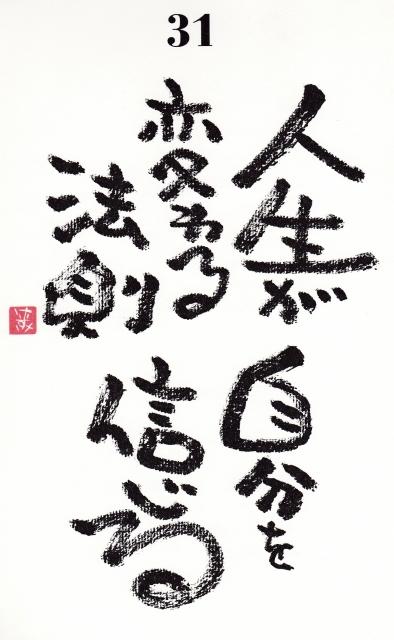 31
人生が
変わる
法則
自分を
信じる